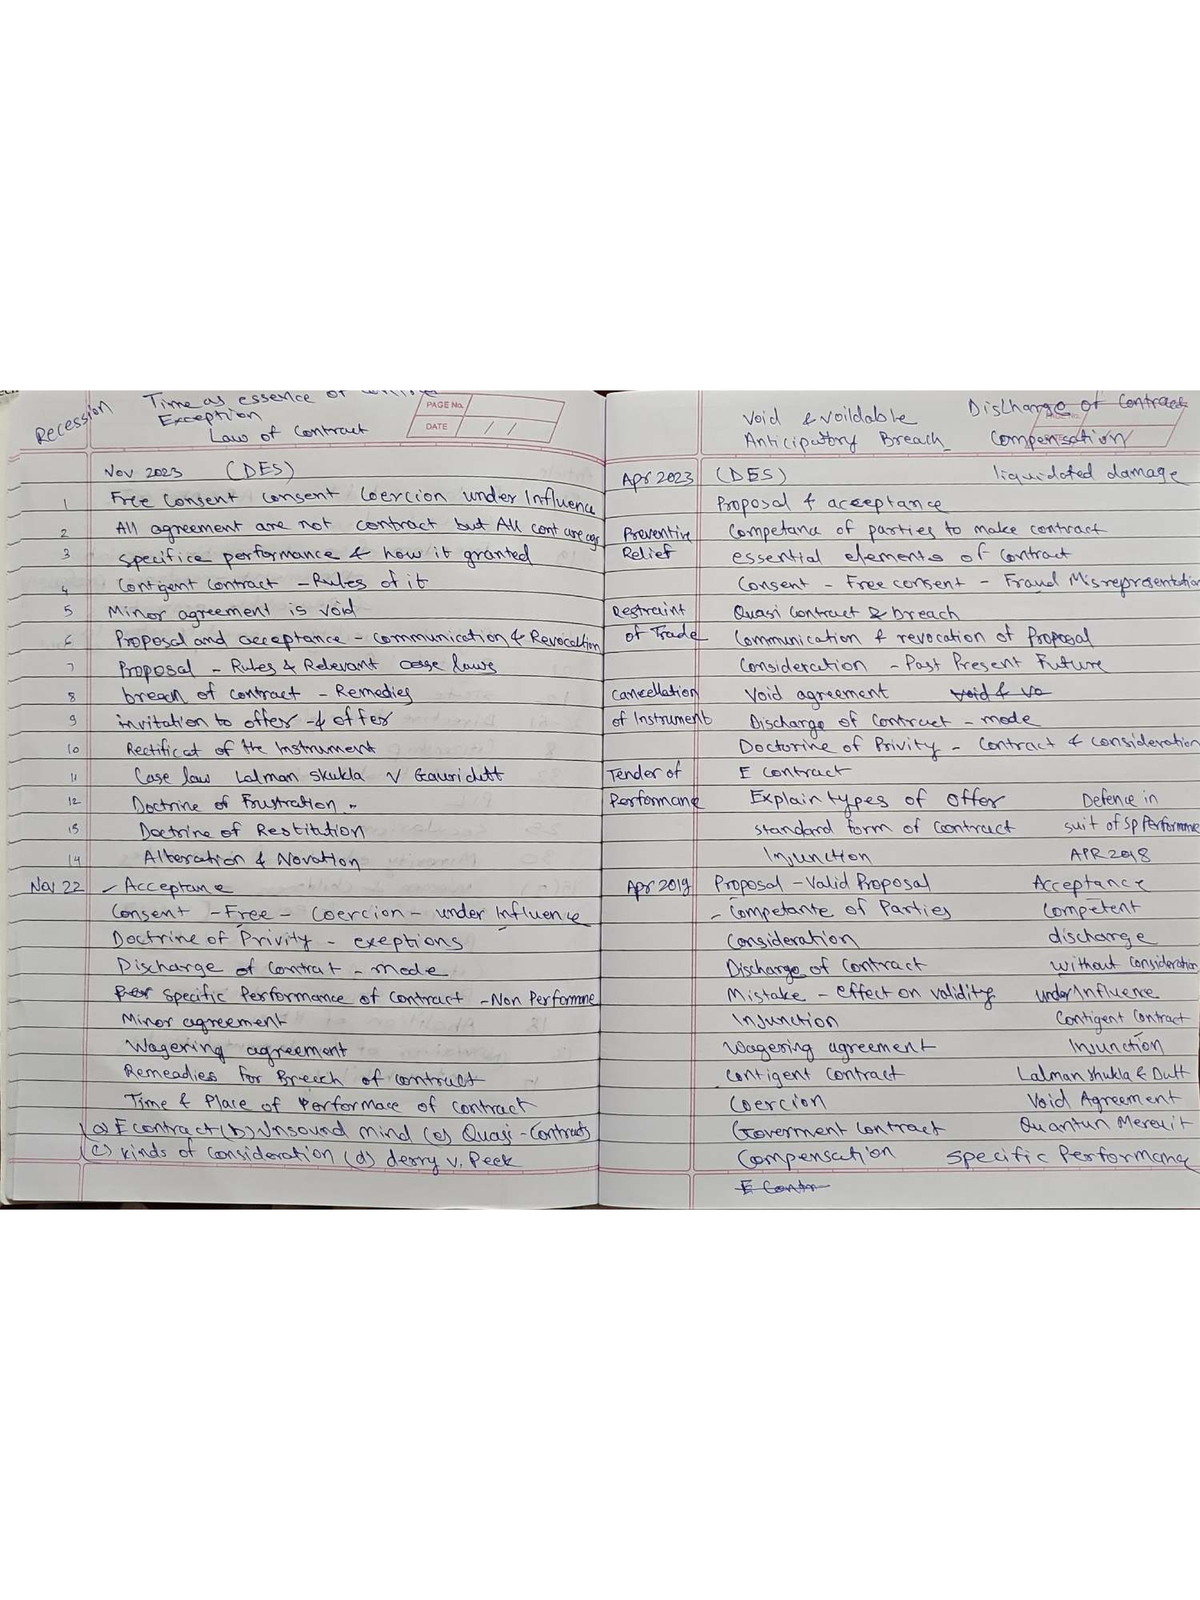 Recession
Time as essence of
Exception
Law of Contract
PAGE No.
DATE / /
Nov 2023 (DES)
1 Free Consent Consent Coercion under Influence
2 All agreement are not contract but All cont are ags
3 specifice performance & how it granted
4 Contigent Contract - Rules of it
5 Minor agreement is void
6 Proposal and acceptance - Communication & Revocaltion
7 Proposal - Rules & Relevant case laws
8 breach of contract - Remedies
9 invitation to offer - & offer
10 Rectificat of the Instrument
11 Case law Lalman Skukla V Gauridutt
12 Doctrine of Frustration -
13 Doctrine of Restitution
14 Alteration & Novation
Nov 22 - Acceptane
Consent - Free - Coercion - under Influence
Doctrine of Privity - exeptions
Discharge of Contrat - mode
Per specific Performance of contract - Non Performne
Minor agreement
Wagering agreement
Remeadies for Breach of contruct
Time & Place of Performace of contract
(a) E contract (b) Unsound mind (e) Quasi - Contracts
(c) kinds of consideration (d) derry v. Peek
Void & voildable
Anticipatory Breach
Discharge of Contract
Compensation
liquidated damage
Apr 2023 (DES)
Proposal & acceptance
Preventive Relief
Competance of parties to make contract
essential elements of Contract
Consent - Free consent - Fraud Misrepresentation
Restraint of Trade
Quasi Contract & breach
Communication & revocation of Proposal
Consideration - Past Present Future
Cancellation of Instrument
Void agreement void & vo
Discharge of Contract - mode
Docturine of Privity - Contract & consideration
Tender of Performane
E contract
Explain types of offer
standard form of contract
Injunction
Defence in
suit of Sp Performne
Apr 2019 Proposal - Valid Proposal
- Competante of Parties
Consideration
Discharge of Contract
Mistake - effect on validity
Injunction
Wagering agreement
Contigent Contract
Coercion
Goverment contract
Compensation
E Contr
APR 2018
Acceptance
Competent
discharge
without consideration
under Influence
Contigent Contract
Injunction
Lalman shukla & Dutt
Void Agreement
Quantun Meruit
Specific Performane